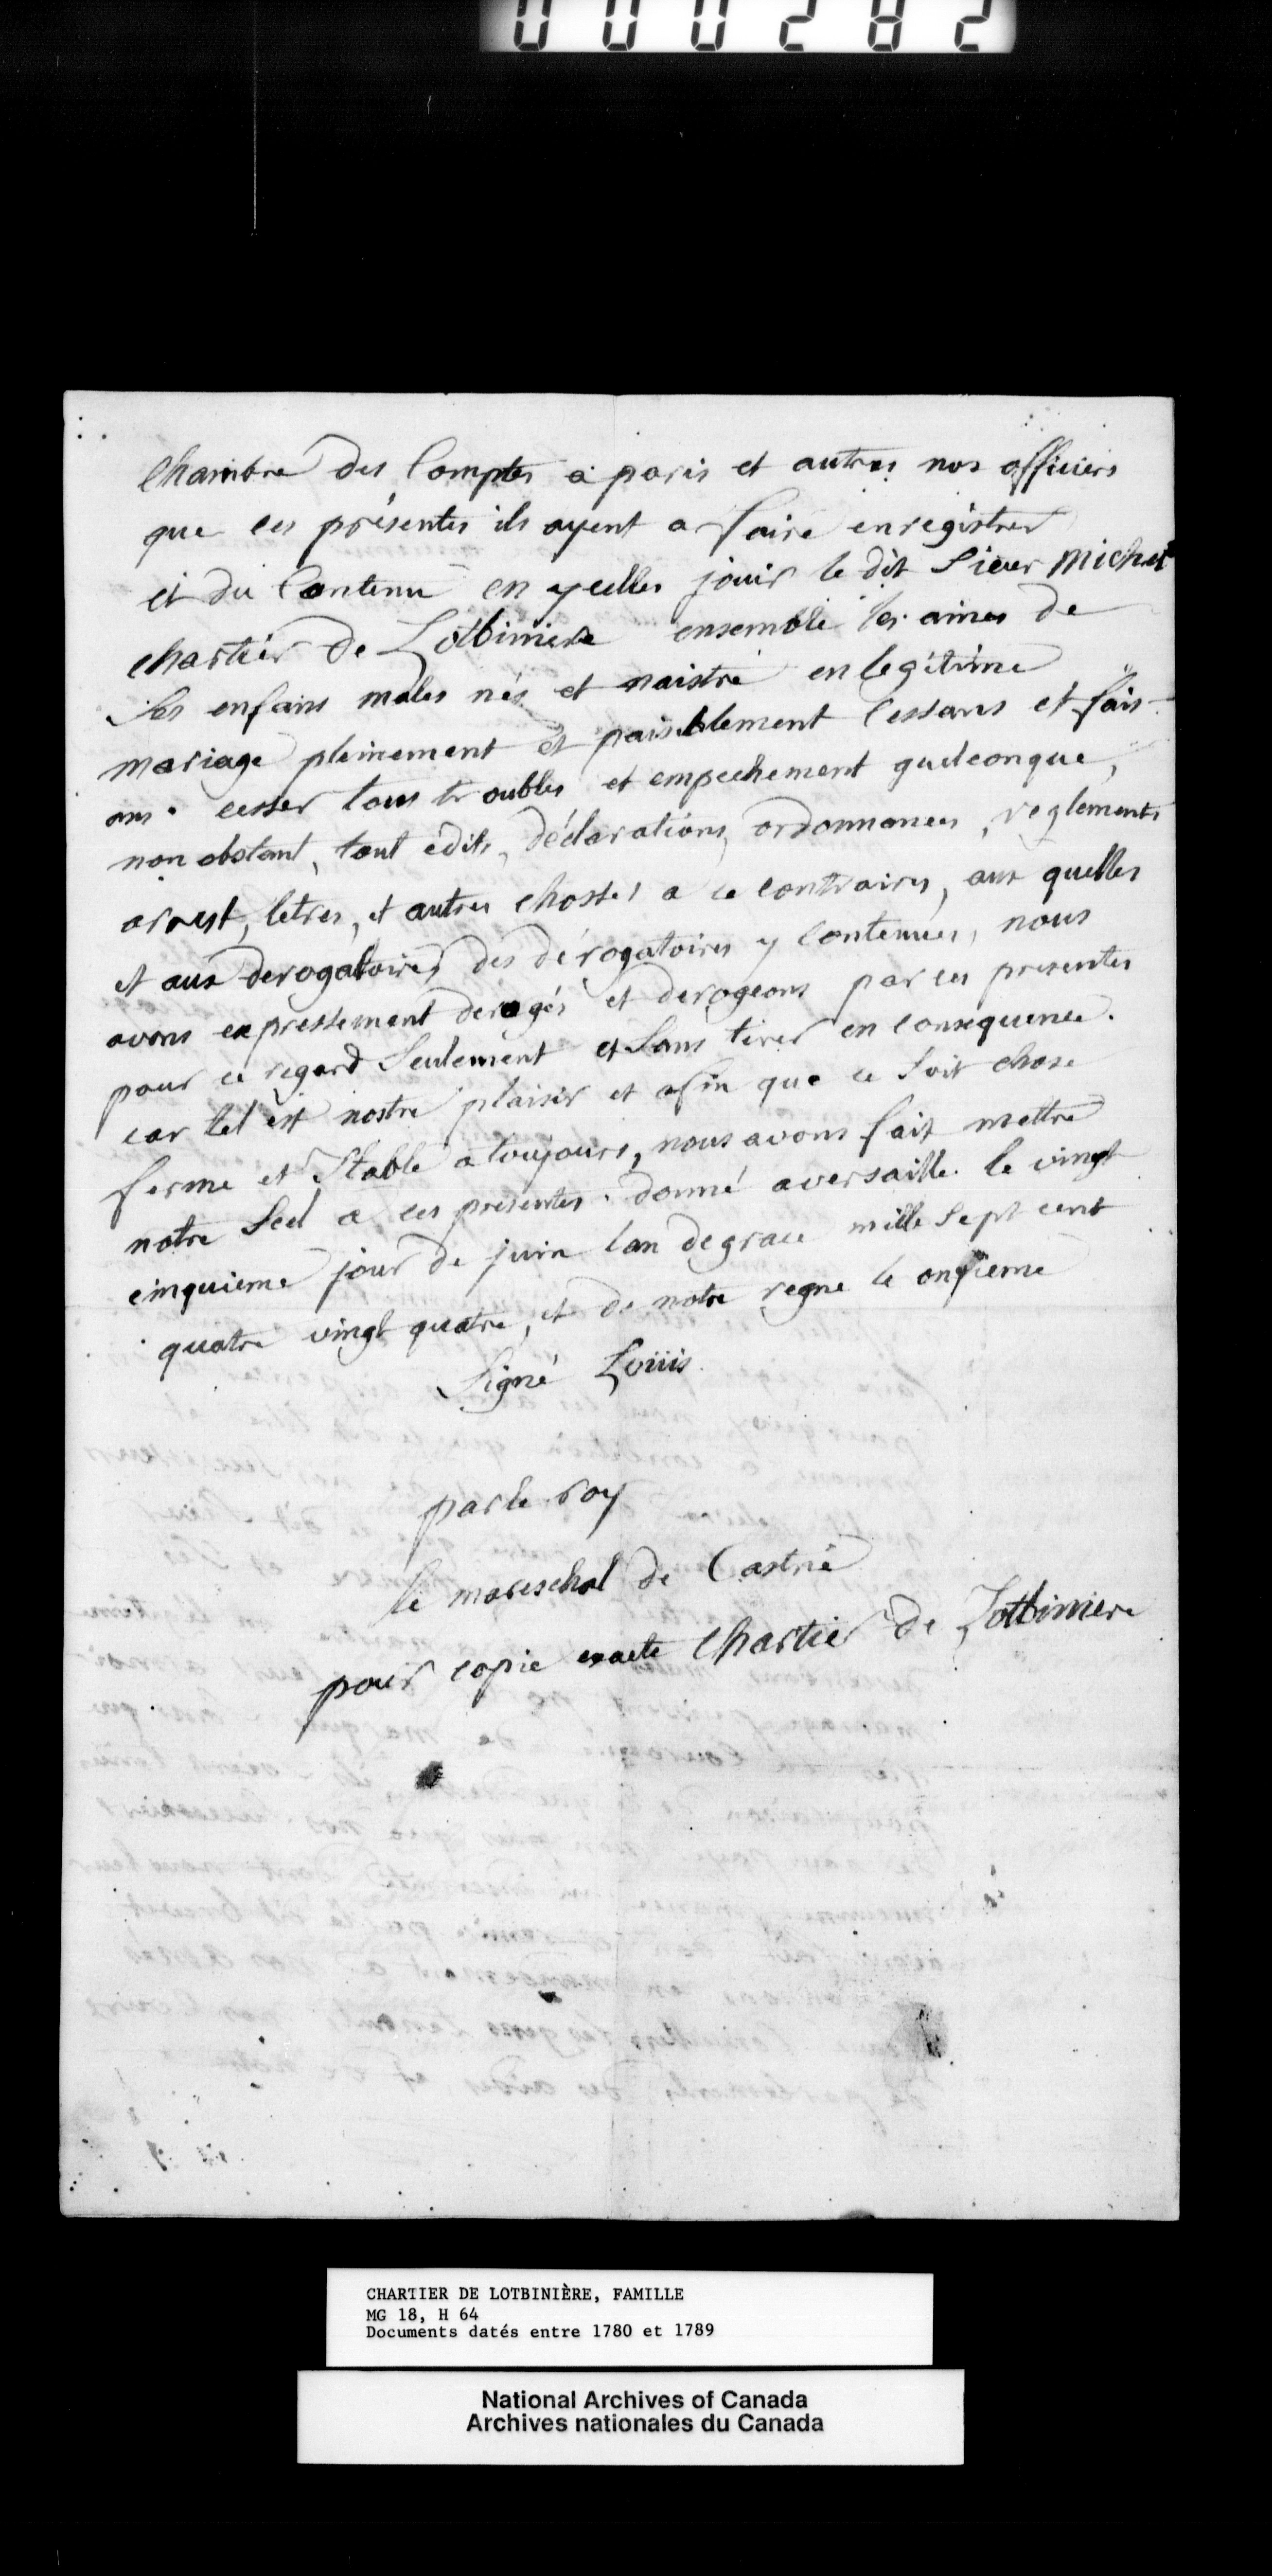 000282
Chambre des Comptes a paris et autres nos officiers
que ces présentes ils ayent a faire enregistrer
et du Contenu en ycelles jouir le dit Sieur Michel
chartier de Lotbiniere ensemble les ainés de
Ses enfans males nés et naistre en legitime
mariage pleinement et paisiblement Cessans et fais
ans cesser tous troubles et empechement quelconque,
non obstant, tout edits, déclarations, ordonnances, reglements
arrest, letres, et autres chostes a ce contraires, aux quelles
et aux derogatoires des dérogatoires y contenues, nous
avons expressement derogés et derogeons par ces presentes
pour ce regard Seulement et Sans tirer en consequence.
car tel est nostre plaisir et afin que ce Soit chose
ferme et Stable a toujours, nous avons fait mettre
notre Scel a ces presentes. donné a versaille le vingt
cinquieme jour de juin lan de grace mille Sept cent
quatre vingt quatre, et de notre regne le onzieme
Signé Loüis
par le roy
le mareschal de Castrie
pour copie exacte Chartier de Lotbiniere
CHARTIER DE LOTBINIÈRE, FAMILLE
MG 18, H 64
Documents datés entre 1780 et 1789
National Archives of Canada
Archives nationales du Canada